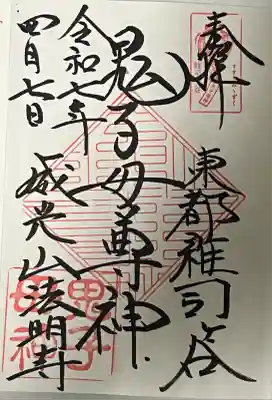 奉拝
東都雑司ヶ谷
鬼子母尊神
威光山法明寺
令和七年
四月七日
鬼子
母神